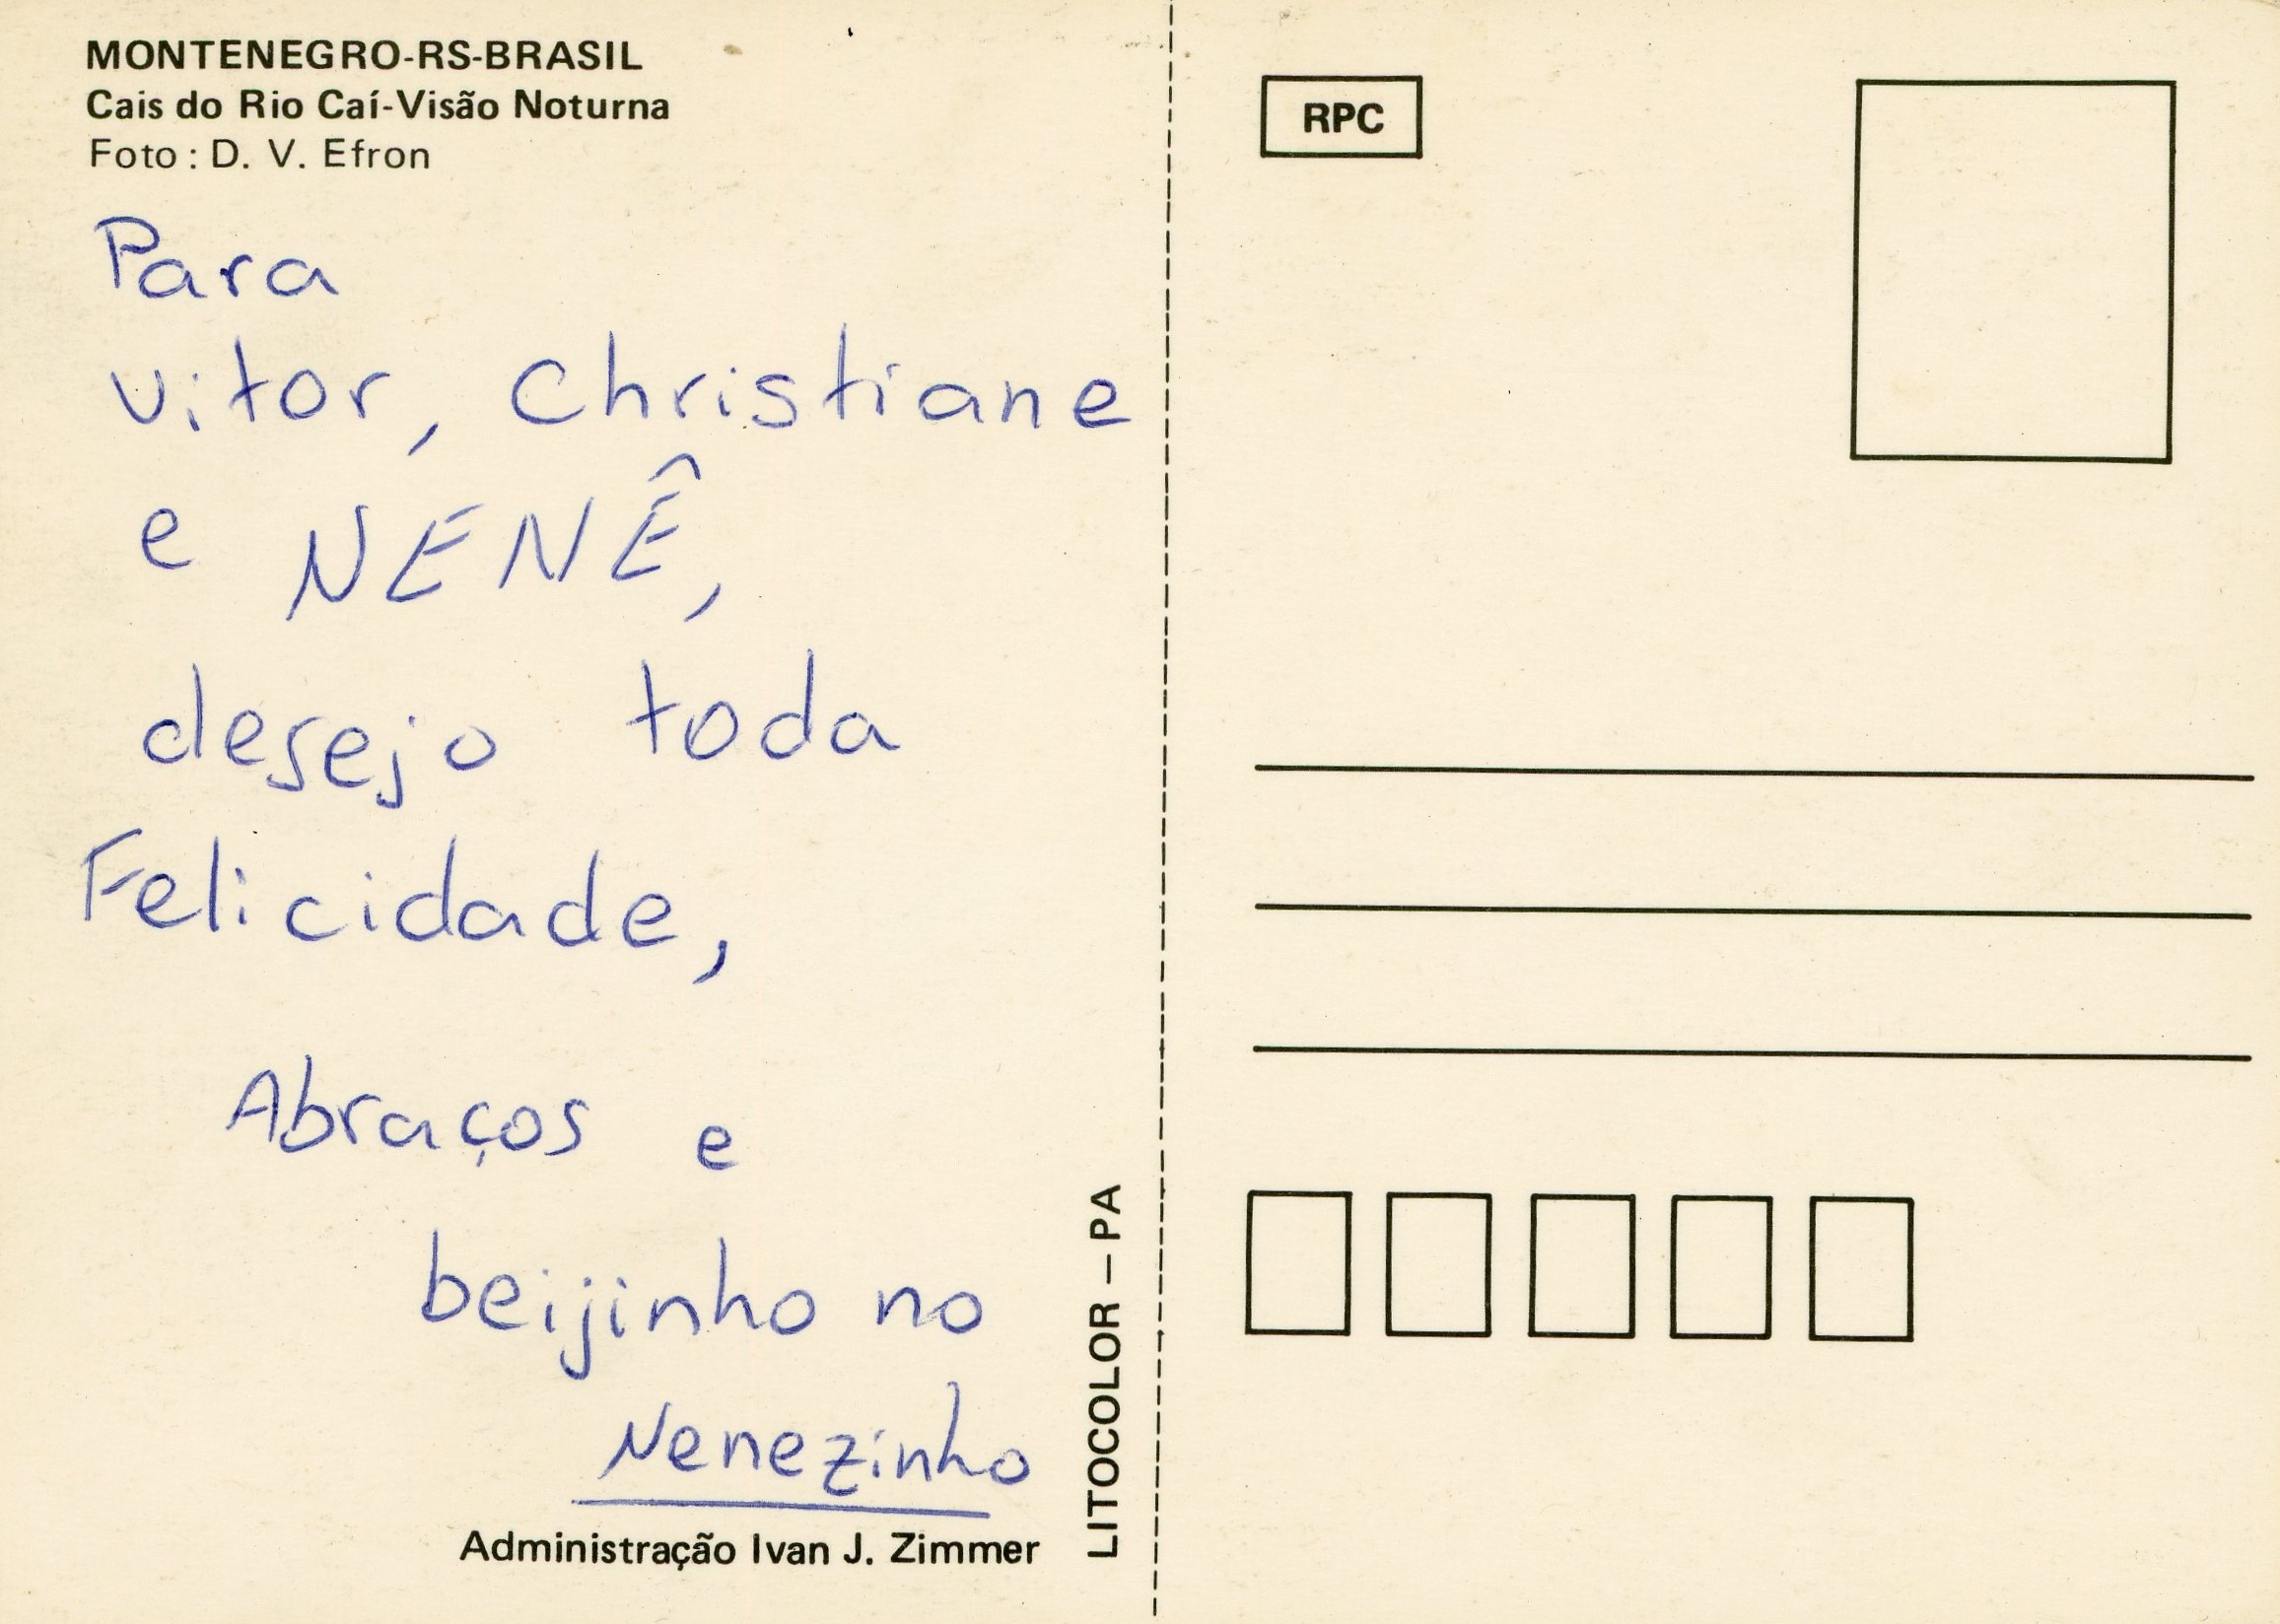 MONTENEGRO-RS-BRASIL
Cais do Rio Caí-Visão Noturna
Foto : D. V. Efron
Para
vitor, Christiane
e NENÊ,
desejo toda
Felicidade,
Abraços e
beijinho no
Nenezinho
Administração Ivan J. Zimmer
LITOCOLOR – PA
RPC